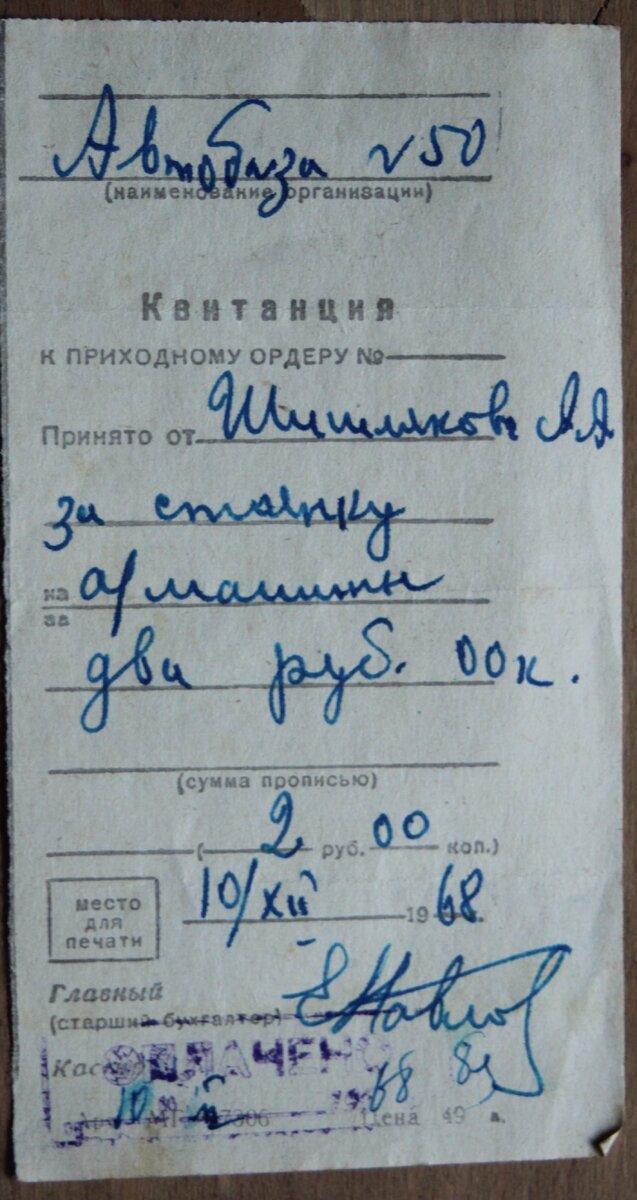 Автобаза №50
(наименование организации)
Квитанция
К ПРИХОДНОМУ ОРДЕРУ №
Принято от Шишлякова А.Я
за стоянку
на а/машины
за
два руб. 00к.
(сумма прописью)
( 2 руб. 00 коп.)
место
для
печати
10/XII 1968.
Главный
(старший бухгалтер)
ОПЛАЧЕНО
Кассир
10 68
Цена 49